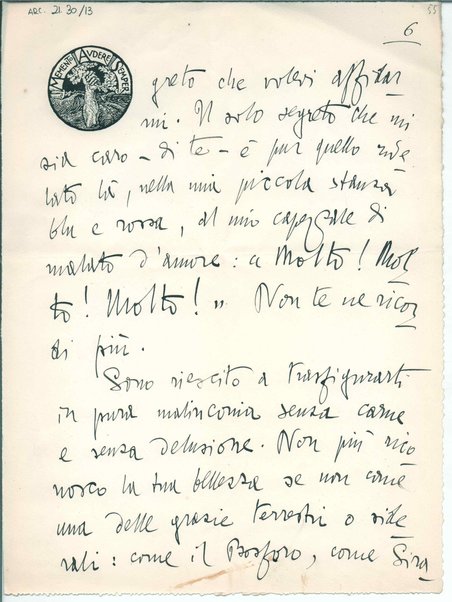 ARC. 21.30/13
55
6
MEMENTO AUDERE SEMPER
greto che volevi affidar
mi. Il solo segreto che mi
sia caro – di te – è pur quello rive
lato là, nella mia piccola stanza
blu e rossa, al mio capezzale di
malato d'amore: « Molto! Mol
to! Molto! » Non te ne ricor
di più.
Sono riescito a trasfigurarti
in pura malinconia senza carne
e senza delusione. Non più rico
nosco la tua bellezza se non come
una delle grazie terrestri o side
rali: come il Bosforo, come Sira